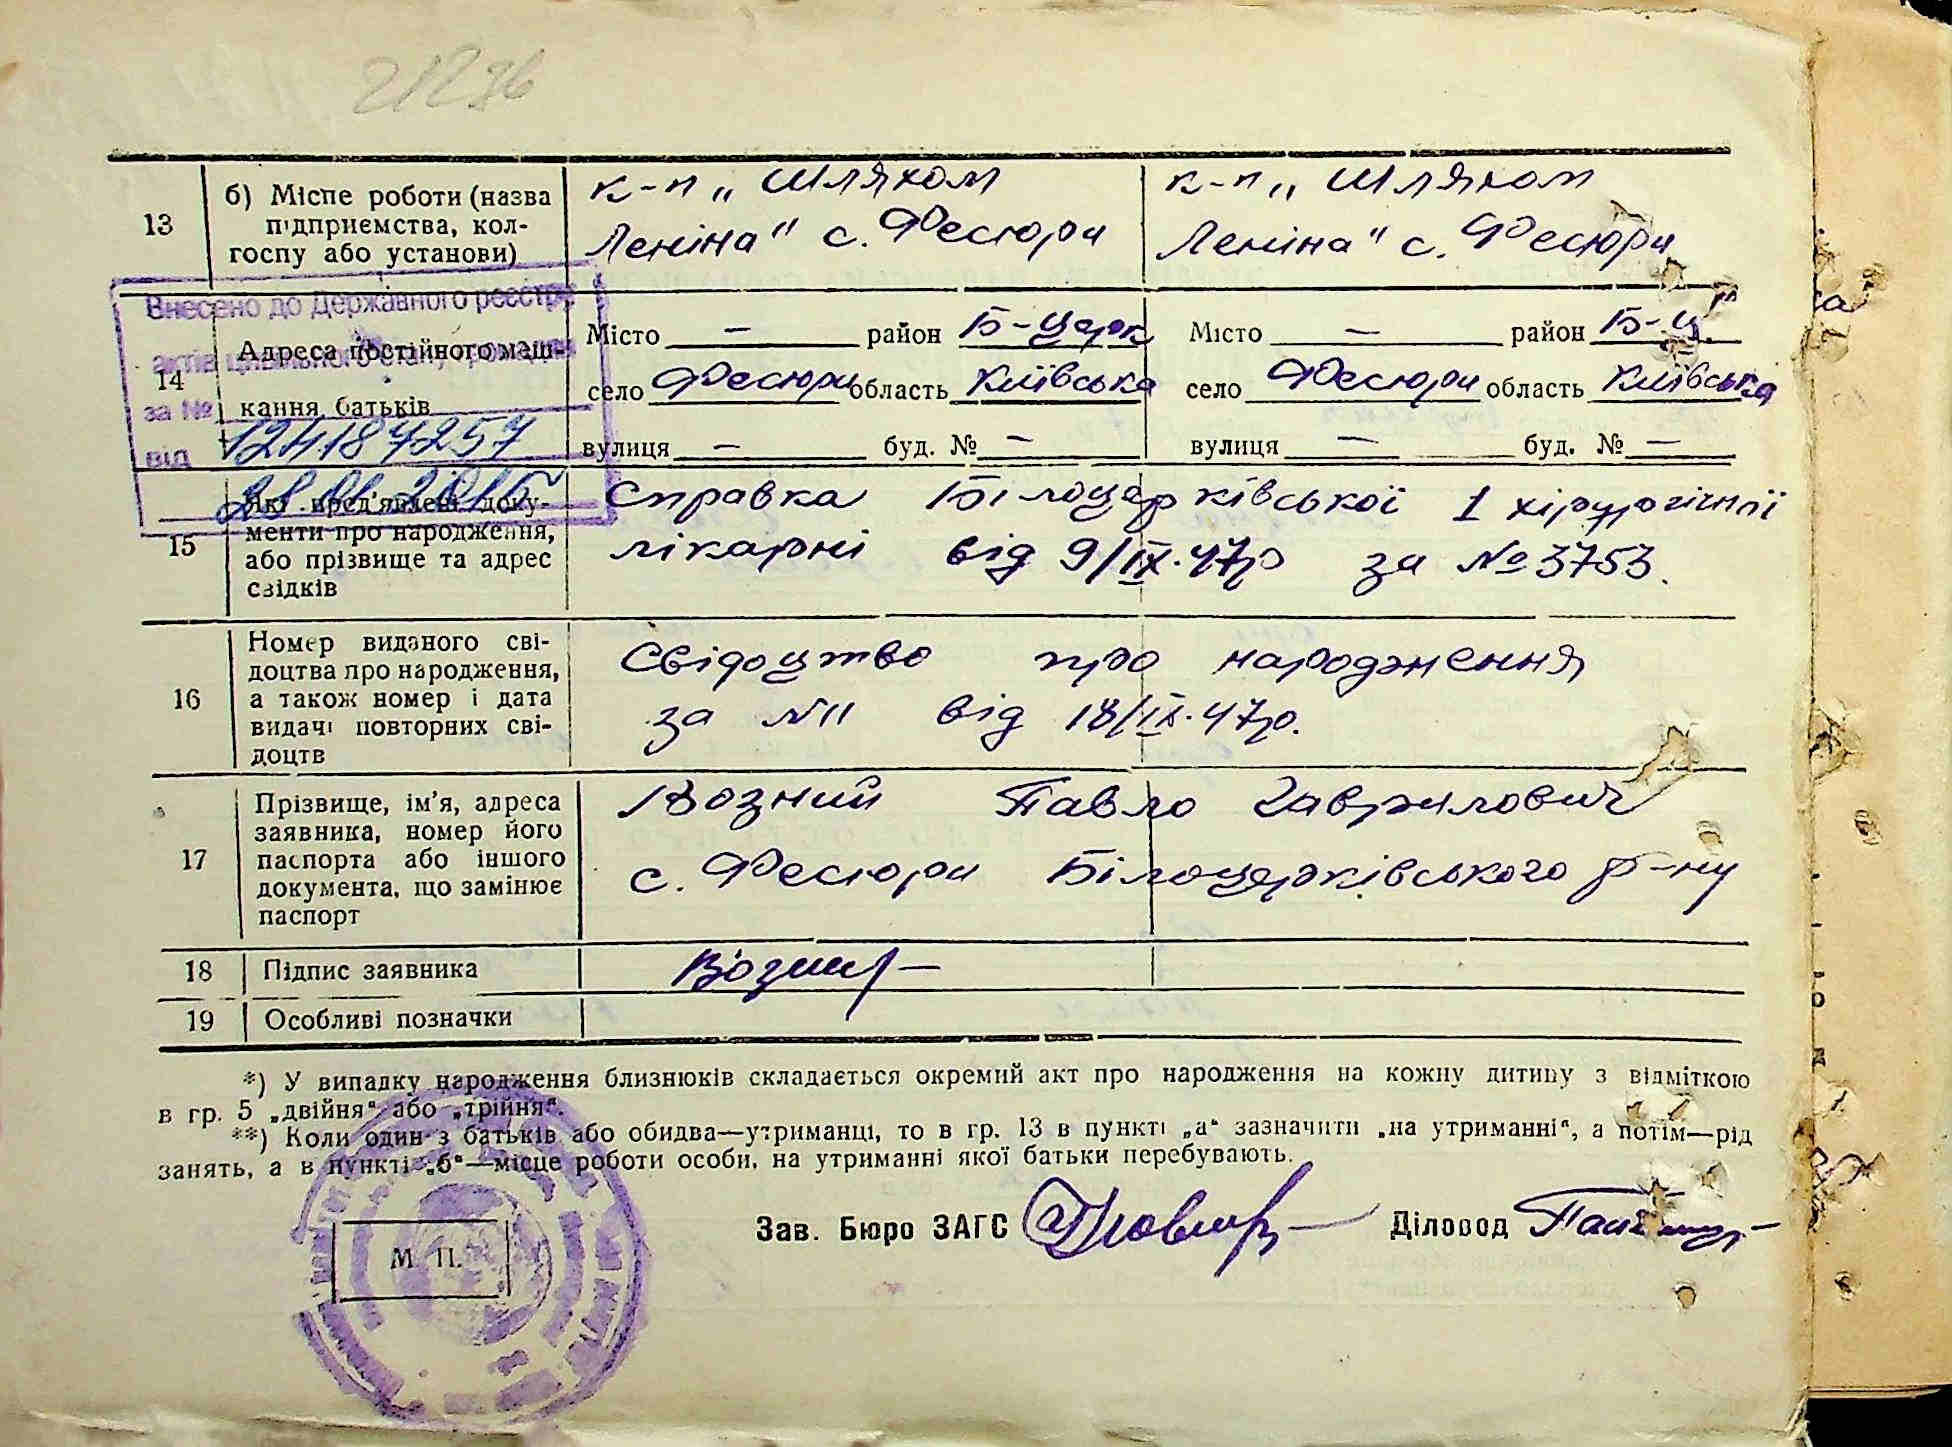 21236
13
б) Місце роботи (назва
підприємства, кол-
госпу або установи)
к-п „Шляхом
Леніна" с. Фесюри
к-п „Шляхом
Леніна" с. Фесюри
Внесено до Державного реєстру
актів цивільного стану громадян
за № 124187257
від 28.01.2015
14
Адреса постійного меш-
кання батьків
Місто — район Б-Церк
село Фесюри область Київська
вулиця — буд. № —
Місто — район Б-Ц.
село Фесюри область Київська
вулиця — буд. № —
15
Які пред'явлені доку-
менти про народження,
або прізвище та адрес
свідків
Справка Білоцерківської 1 хірургічної
лікарні від 9/IX.47р за № 3753.
16
Номер виданого сві-
доцтва про народження,
а також номер і дата
видачі повторних сві-
доцтв
Свідоцтво про народження
за №11 від 18/IX.47р.
17
Прізвище, ім'я, адреса
заявника, номер його
паспорта або іншого
документа, що замінює
паспорт
Возний Павло Гаврилович
с. Фесюри Білоцерківського р-ну
18
Підпис заявника
Возний
19
Особливі позначки
*) У випадку народження близнюків складається окремий акт про народження на кожну дитину з відміткою
в гр. 5 „двійня" або „трійня".
**) Коли один з батьків або обидва—утриманці, то в гр. 13 в пункті „а" зазначити „на утриманні", а потім—рід
занять, а в пункті „б"—місце роботи особи, на утриманні якої батьки перебувають.
Зав. Бюро ЗАГС
Діловод
М. П.